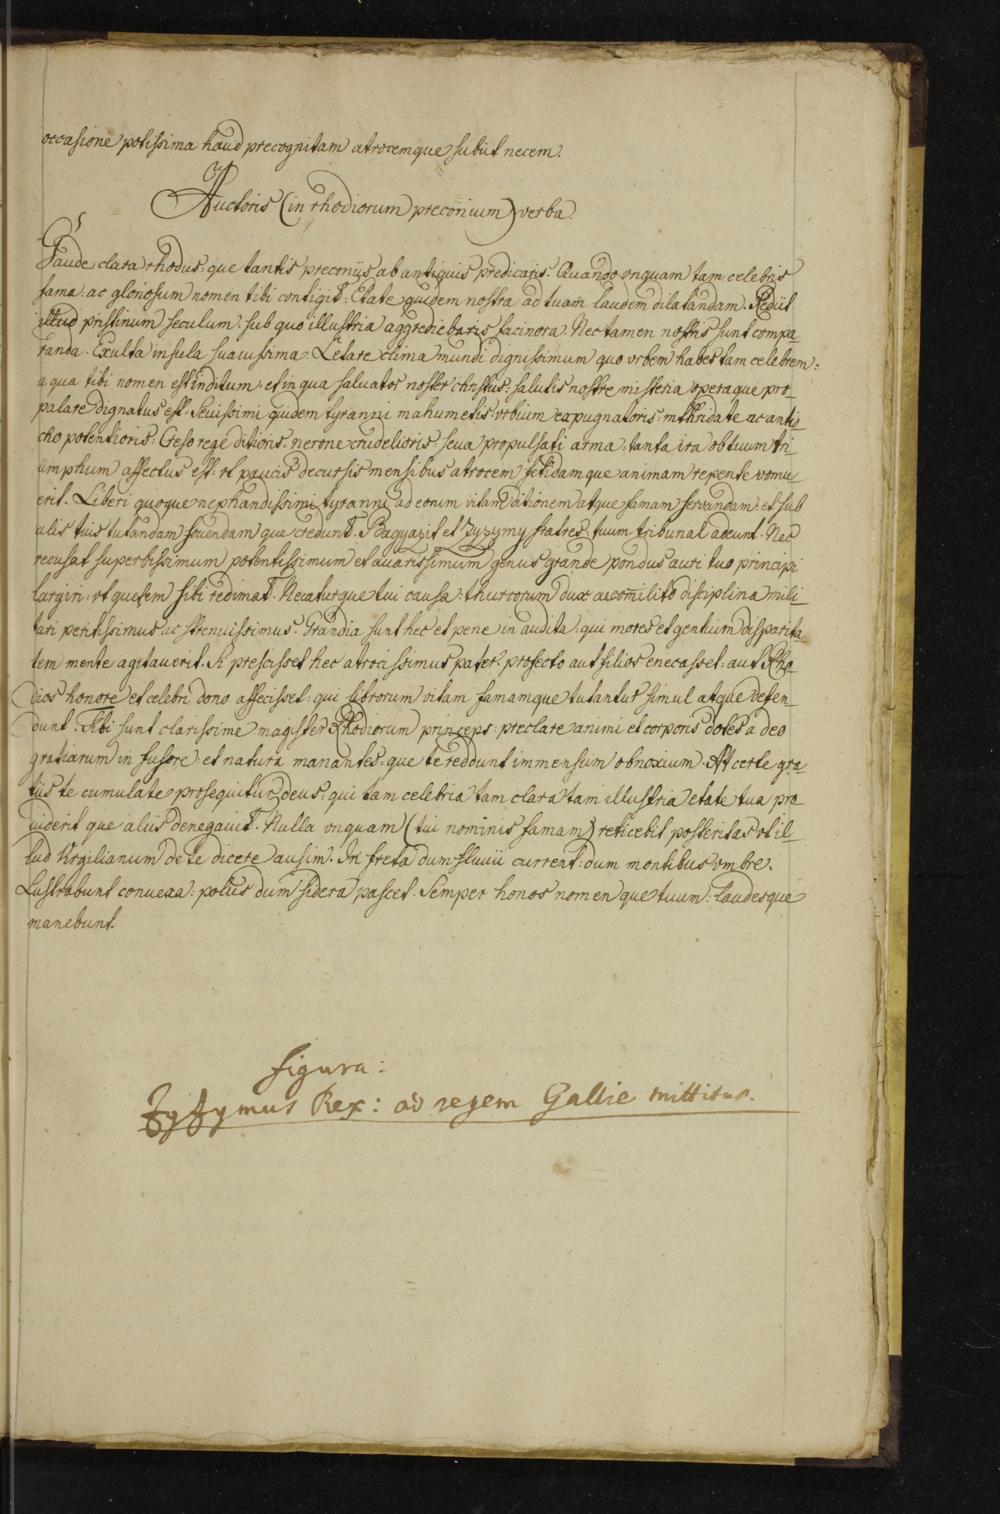 occasione potissima haud precognitam atrocemque subiit necem.
Auctoris (in rhodiorum preconium) verba.
Gaude clara rhodus: que tantis preconiis ab antiquis predicaris. Quando vnquam tam celebris
fama: ac gloriosum nomen tibi contigit: Etate quidem nostra ad tuam laudem dilatandam. Rediit
illud pristinum seculum: sub quo illustria aggrediebaris facinora. Nec tamen nostris sunt compa-
randa. Exulta insula suauissima. Letare clima mundi dignissimum quo vrbem habes tam celebrem:
a qua tibi nomen est inditum: et in qua saluator noster christus: salutis nostre misteria operaque pro-
palare dignatus est. Seuissimi quidem tyranni mahumetis: vrbium expugnatoris: mithridate ac antio
cho potentioris: Creso rege ditioris: nerone crudelioris seua propulsasti arma: tanta ira ob tuum tri
umphum affectus est: vt paucis decursis mensibus atrocem fetidamque animam repente vomu
erit. Liberi quoque nephandissimi tyranni ad eorum vitam ditionem atque famam servandam: et sub
alis tuis tutandam fouendamque credunt. Bagyazit et Zyzymy fratres: tuum tribunal adeunt. Nec
recusat superbissimum potentissimum et auarissimum genus grande pondus auri tuo principi
largiri: vt quietem sibi redimat. Necaturque tui causa: thurcorum dux acomito disciplina mili-
tari peritissimus ac strenuissimus. Grandia sunt hec et pene in audita: qui mores et gentium disparita
tem mente agitauerit. Si prescisset hec atrocissimus pater: profecto aut filios enecasset: aut Rho-
dios honore et celebri dono affecisset: qui suorum vitam famamque tutantur simul atque defen-
dunt. Tibi sunt clarissime magister Rhodiorum princeps: preclare animi et corporis dotes a deo
gratiarum in fusore: et natura manantes: que te reddunt immensum obnoxium. At certe gra-
tiis te cumulate prosequitur deus: qui tam celebria tam clara tam illustria etate tua pro-
uiderit que aliis denegauit. Nulla vnquam (tui nominis famam) reticebit posteritas vt il-
lud Virgilianum de te dicere ausim. In freta dum fluuii current: dum montibus vmbre.
Lustrabunt conuexa: polus dum sidera pascet. Semper honos nomen que tuum: laudesque
manebunt.
figura:
Zyzymus Rex: ad regem Gallie mittitur.